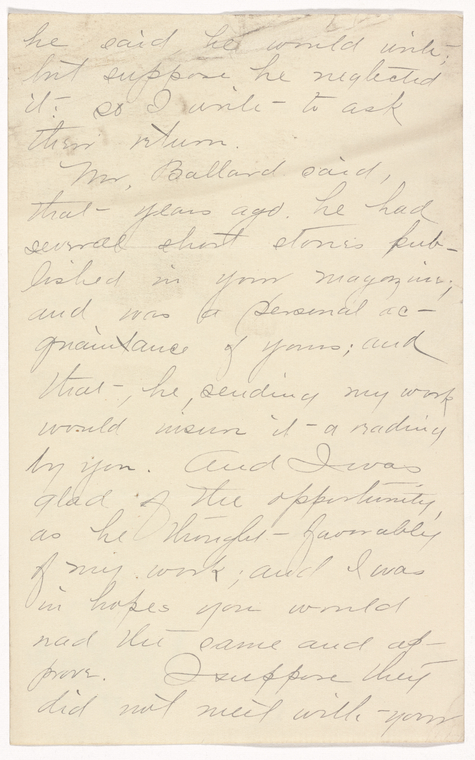 he said, he would write;
but suppose he neglected
it: so I write - to ask
their return.
Mr, Ballard said,
that - years ago. he had
several short stories pub-
lished in your magazine;
and was a personal ac-
quaintance of yours; and
that -, he, sending my work
would insure it - a reading
by you. And I was
glad of the opportunity,
as he thought - favorably
of my work; and I was
in hopes you would
read the same and ap-
prove. I suppose they
did not meet with - your